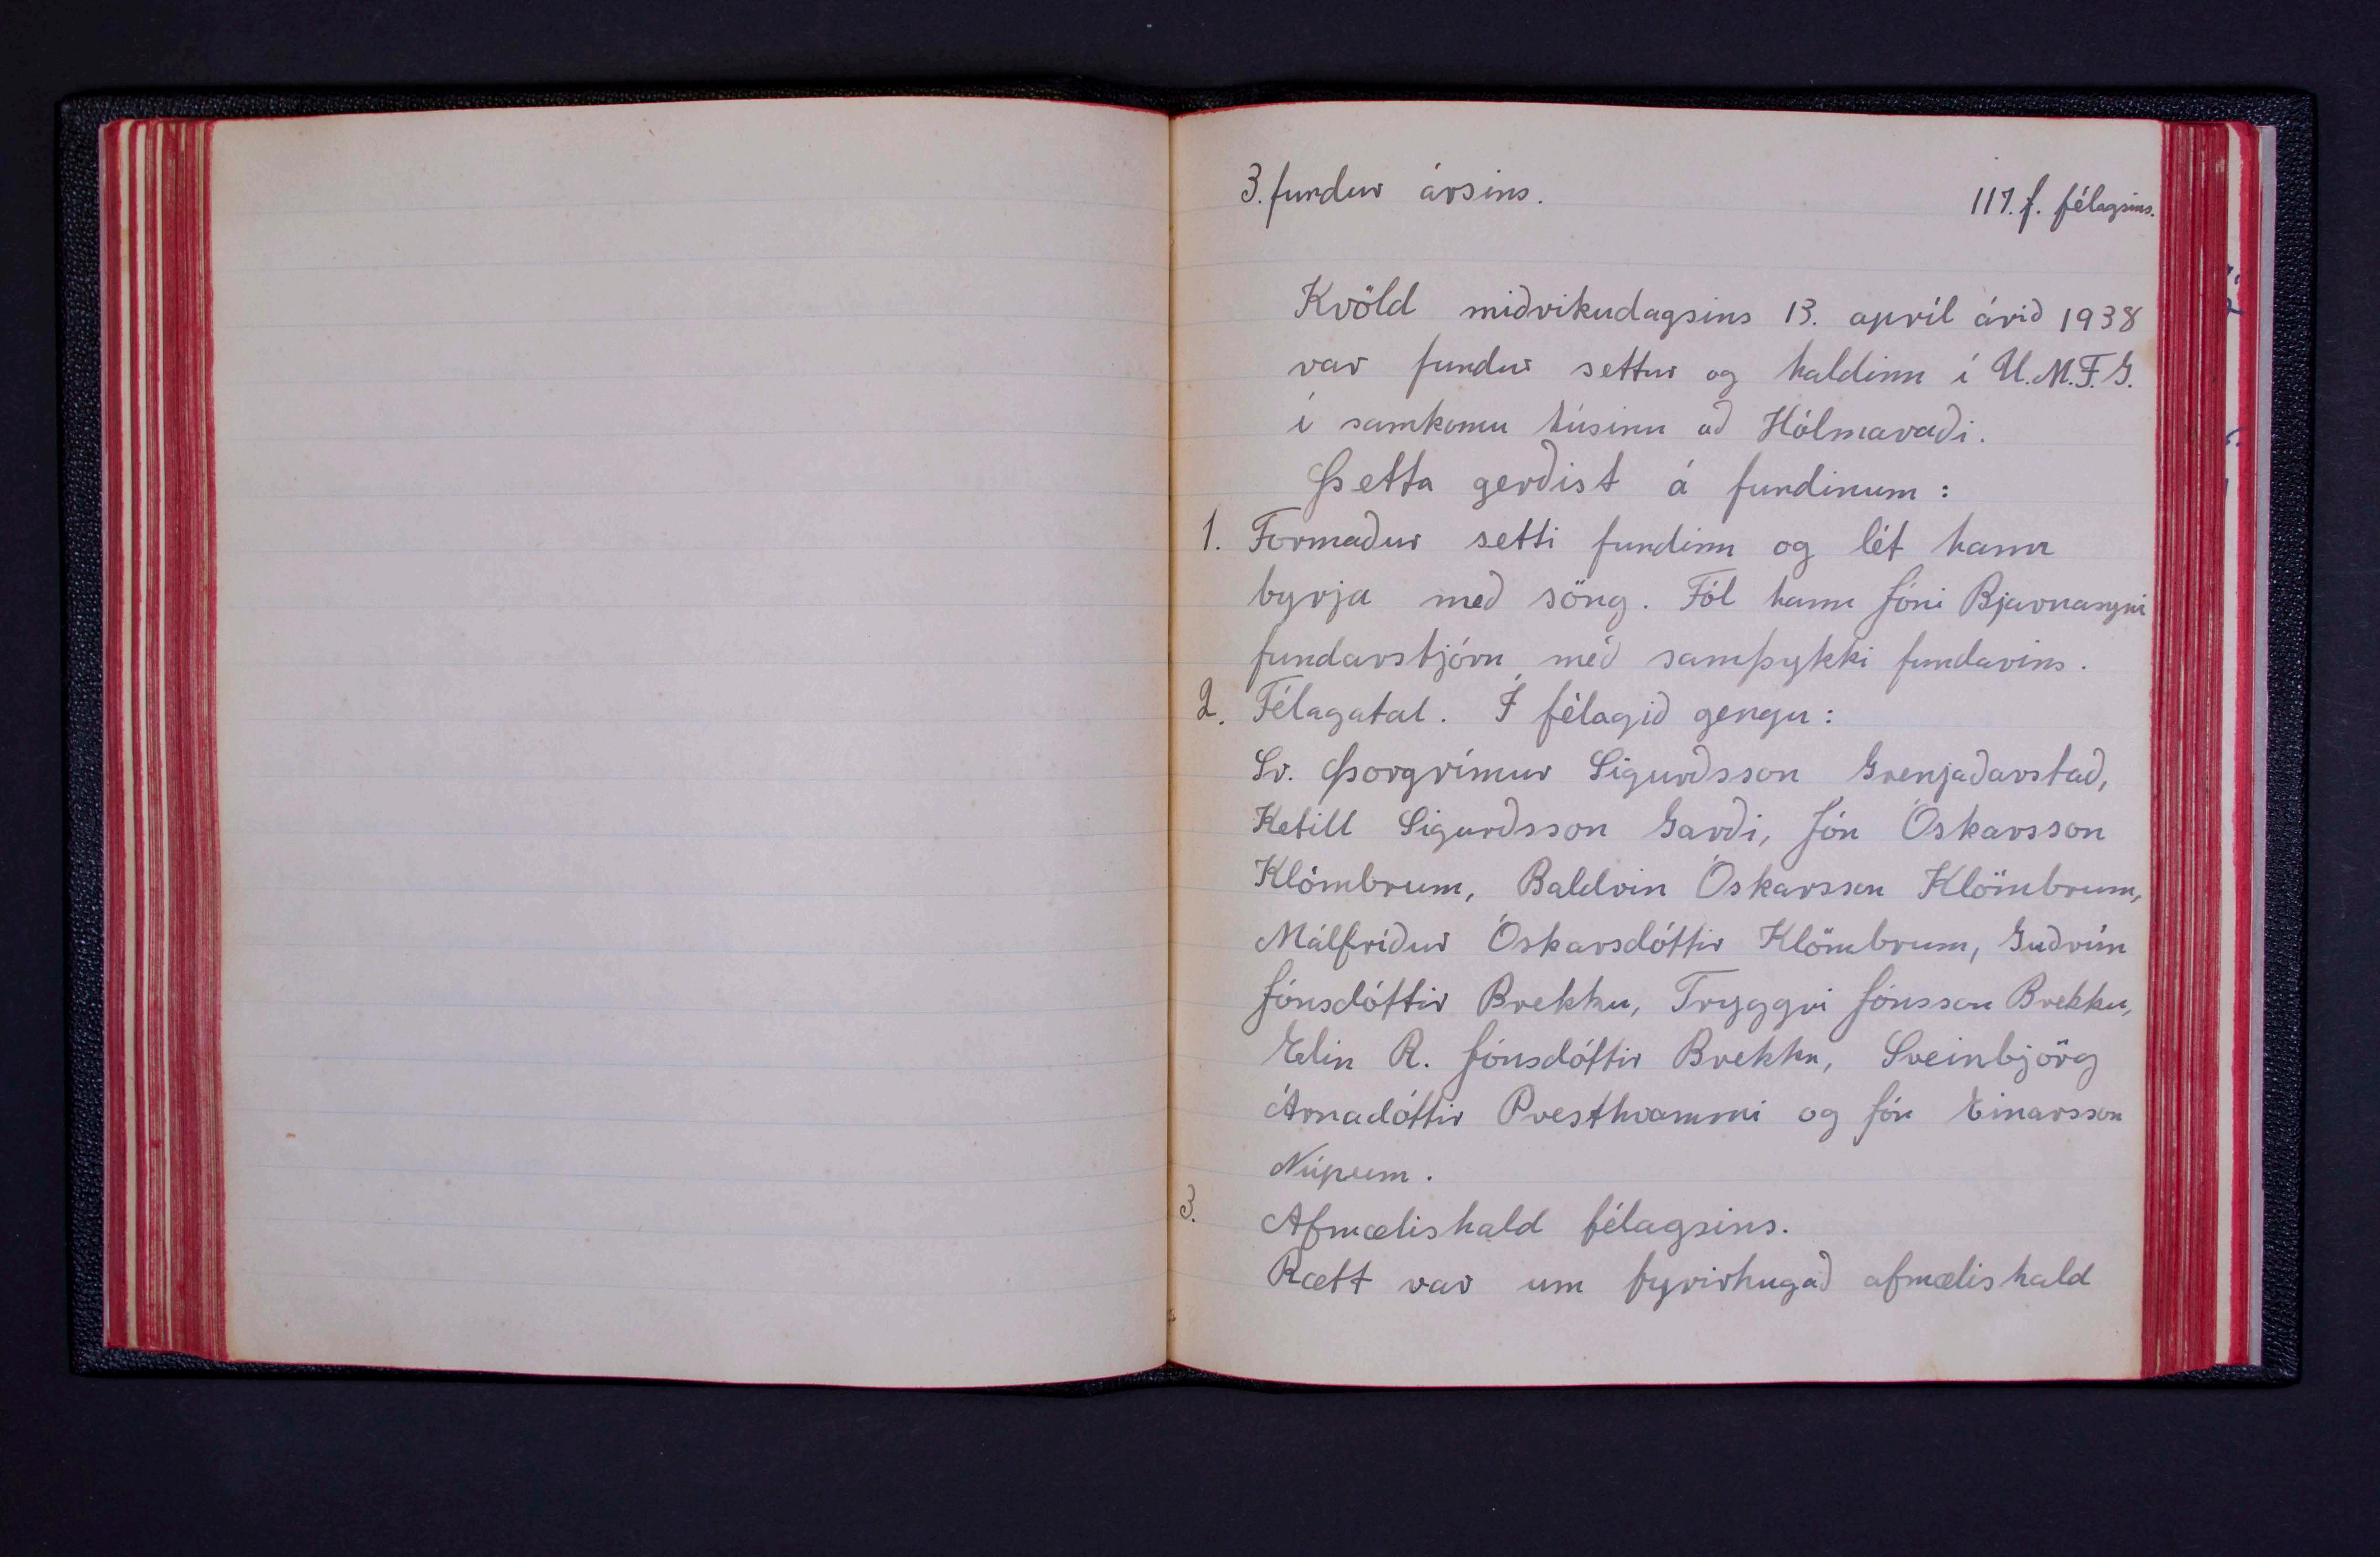 3. fundur ársins.
117. f. félagsins.
Kvöld miðvikudagsins 13. apríl árið 1938
var fundur settur og haldinn í U.M.F.G.
í samkomu húsinu að Hólmavaði.
Þetta gerðist á fundinum:
1. Formaður setti fundinn og lét hann
byrja með söng. Fól hann Jóni Bjarnasyni
fundarstjórn með samþykki fundarins.
2. Félagatal. Í félagið gengu:
Sr. Þorgrímur Sigurðsson Grenjaðarstað,
Ketill Sigurðsson Garði, Jón Óskarsson
Klömbrum, Baldvin Óskarsson Klömbrum,
Málfríður Óskarsdóttir Klömbrum, Guðrún
Jónsdóttir Brekku, Tryggvi Jónsson Brekku,
Elin R. Jónsdóttir Brekku, Sveinbjörg
Árnadóttir Presthvammi og Jón Einarsson
Núpum.
3. Afmælishald félagsins.
Rætt var um fyrirhugað afmælishald